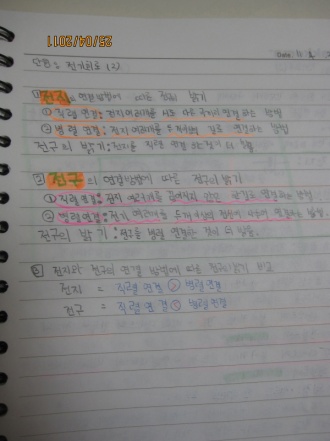 25/04/2011
단원 : 전기회로 (2)
① 전지의 연결방법에 따른 전구의 밝기
① 직렬 연결: 전지 여러개를 서로 다른 극끼리 연결 하는 방법
② 병렬 연결: 전지 여러개를 연결하는 방법
전구의 밝기: 전지를 직렬 연결 더 밝음
② 전구의 연결방법에 따른 전구의 밝기
① 직렬 연결: 전구 여러개를 연결하는 방법
② 병렬 연결: 전구 여러개를 연결하는 방법
전구의 밝기: 전구를 병렬 연결한 것이 더 밝음.
③ 전지와 전구의 연결 방법에 따른 전구의 밝기 비교
전지 = 직렬연결 > 병렬연결
전구 = 직렬연결 < 병렬연결